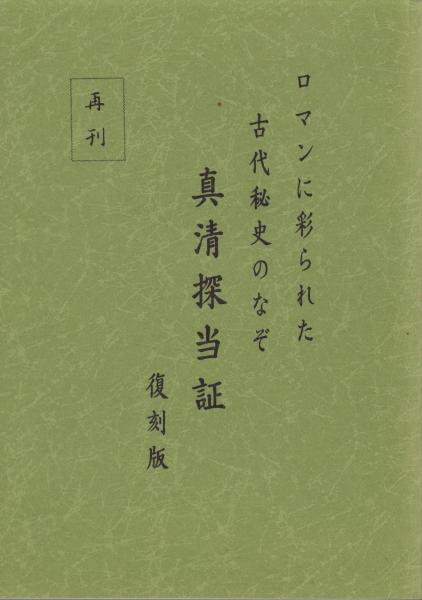 ロマンに彩られた
古代秘史のなぞ
真清探当証
復刻版
再刊